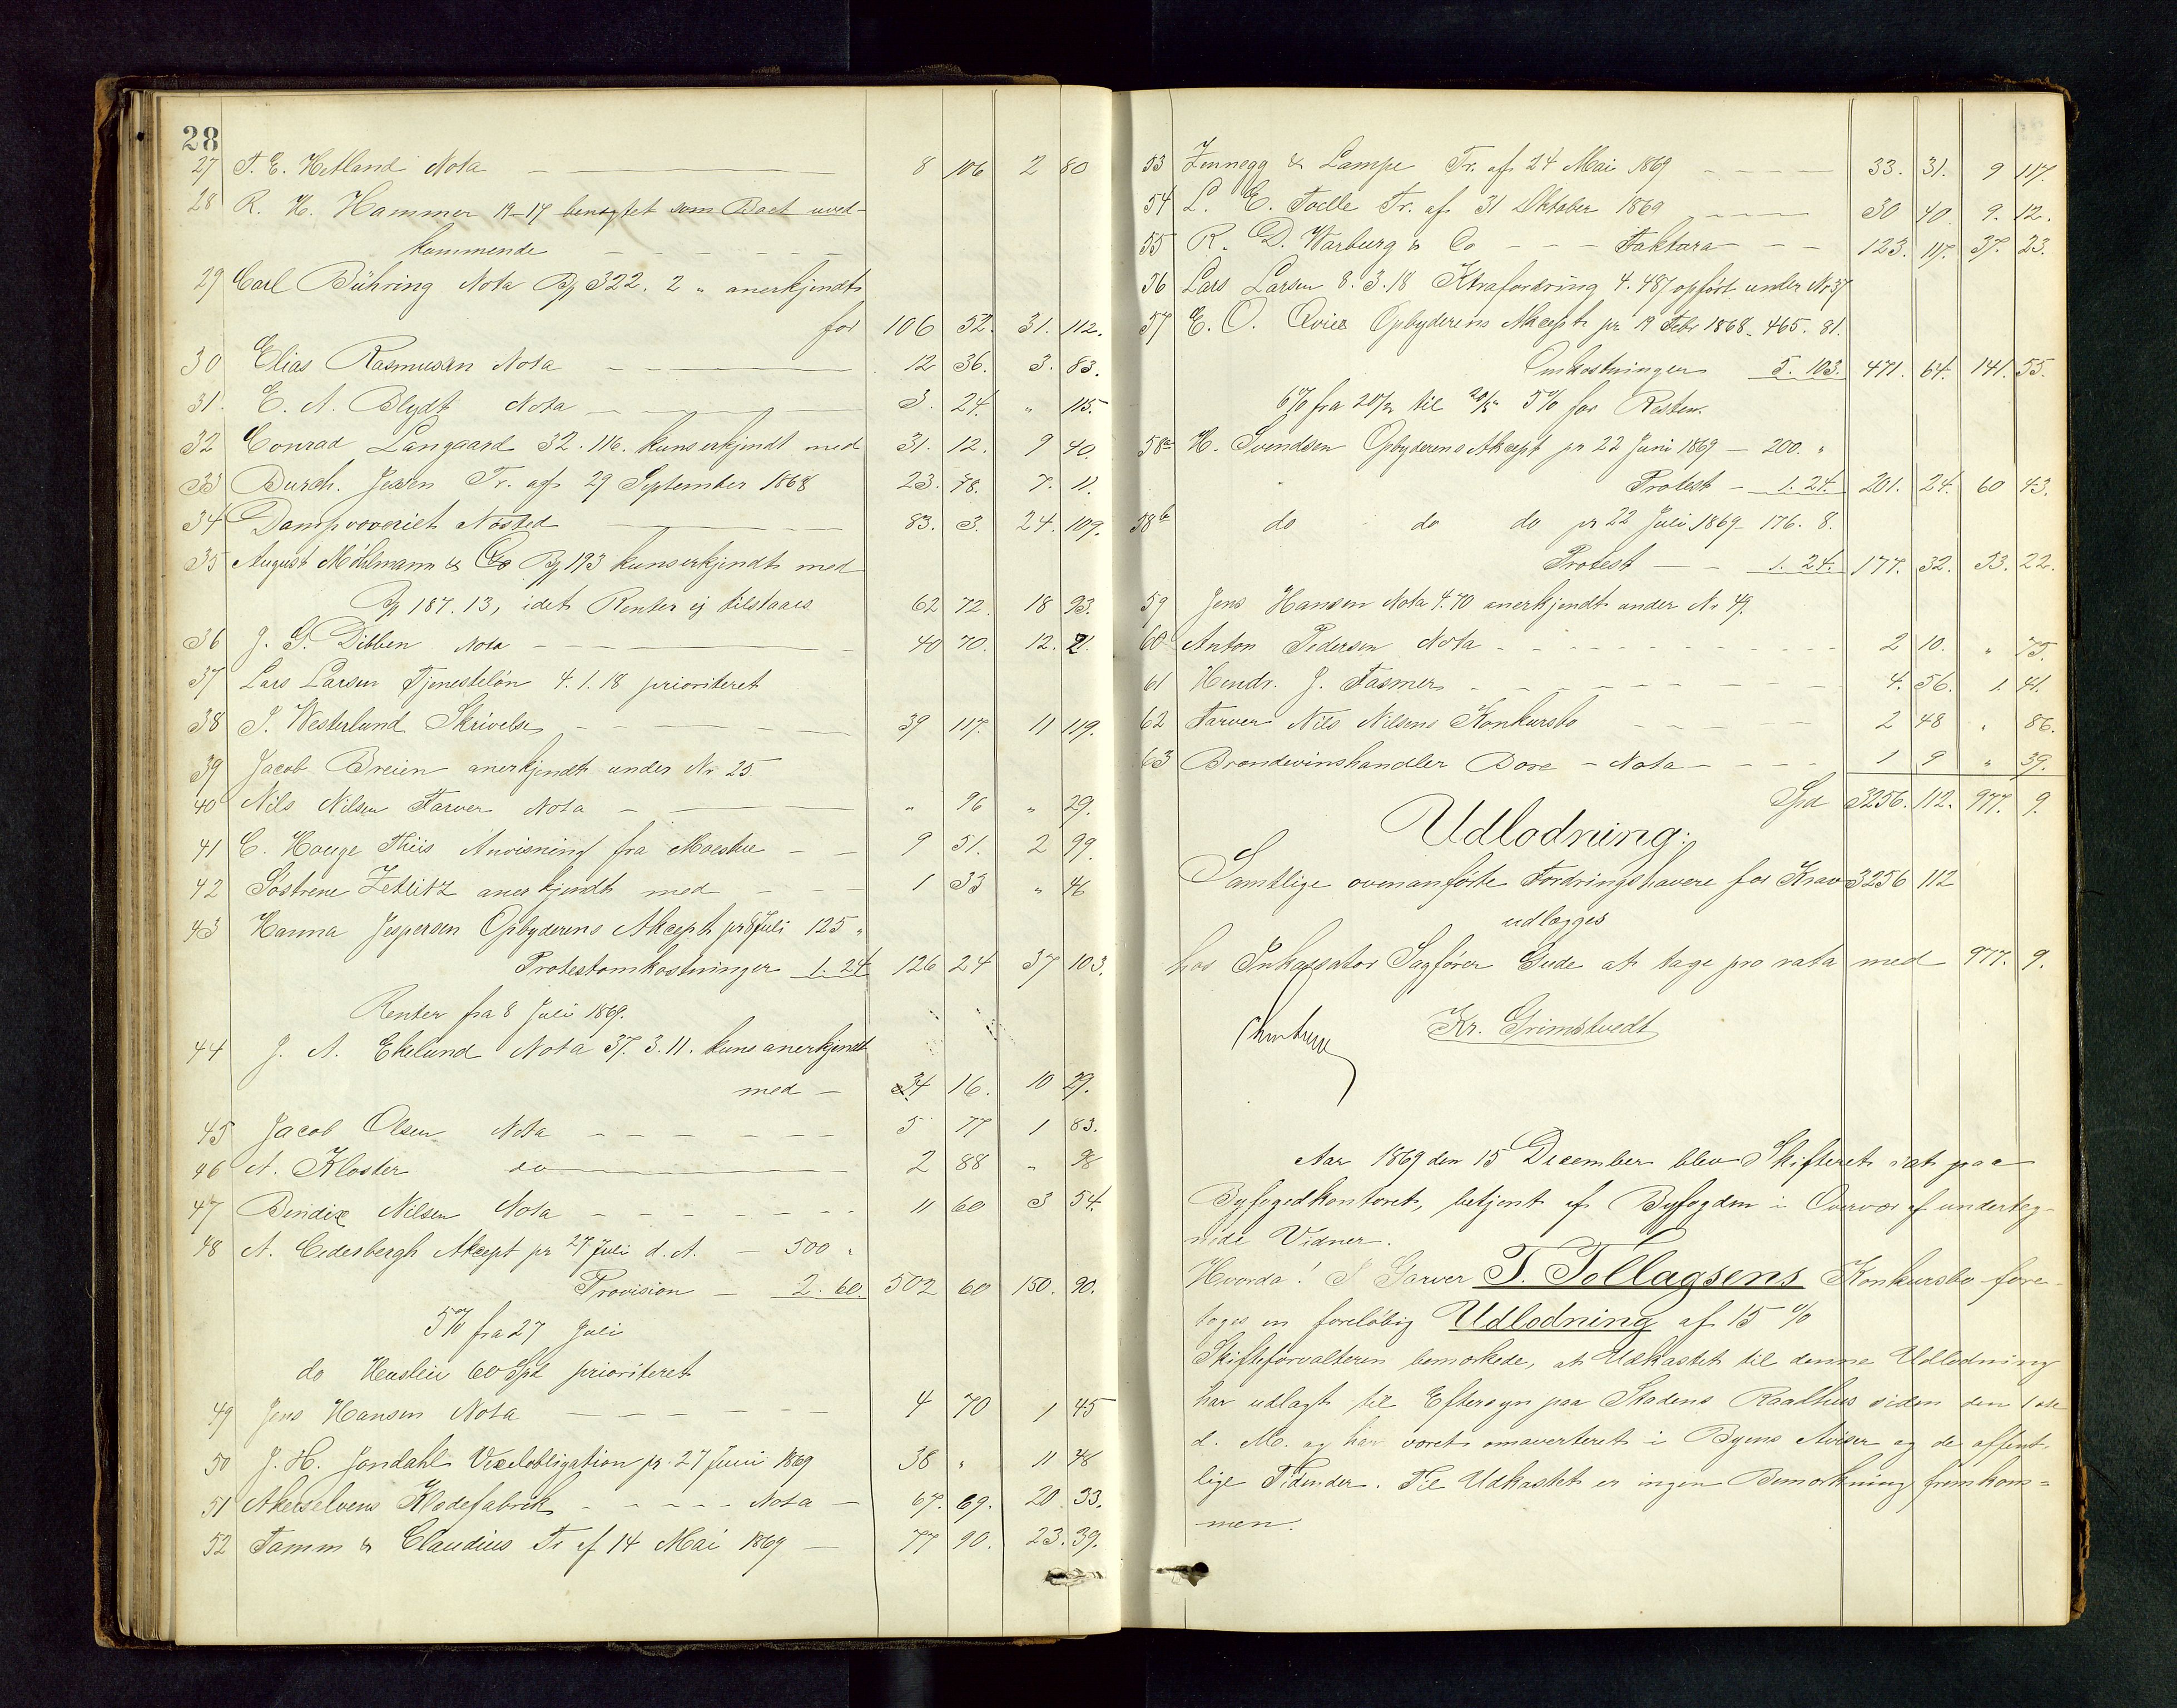 28
27 T. E. Hetland Nota 8 106 2 80
28 R. H. Hammer 19-17 benegtet som Boet uved-
kommende
29 Carl Bühring Nota 322. 2 " anerkjendt
for 106 52. 31. 112.
30 Elias Rasmusen Nota 12 36. 3. 83.
31. E. A. Blydt Nota 3. 24. " 115.
32 Conrad Langaard 32. 116. kuns erkjendt med 31. 12. 9 40.
33 Burch. Jessen Tr. af 29 September 1868 23. 78. 7. 11.
34 Dampvæveriet Nøsted 83. 3. 24. 109.
35 August Möhlmann & Co 193 kuns erkjendt med
187. 13, idet Renter ej tilstaaes 62 72. 18 93.
36 J. G. Dibben Nota 40 70. 12. 21.
37 Lars Larsen Tjenesteløn 4. 1. 18 prioriteret
38 J. Westerlund Skrivelse 39 117. 11 119.
39 Jacob Breien anerkjendt under Nr 25.
40 Nils Nilsen Farver Nota " 96 " 29.
41 C. Houge Thiis Anvisning fra Moestue 9 51. 2 99.
42 Søstrene Zetlitz anerkjendt med 1 33 " 46
43 Hanna Jespersen Opbyderens Akcept pr 8 Juli 125 "
Protestomkostninger 1. 24 126 24 37 103.
Renter fra 8 Juli 1869.
44 J. A. Ekelund Nota 37. 3. 11. kuns anerkjendt
med 34 16. 10 29.
45 Jacob Olsen Nota 5 77 1 83.
46 A. Kloster do 2 88 " 98
47 Bendix Nilsen Nota 11 60 3 54.
48 A. Cedesbergh Akcept pr 27 Juli d. A. 500 "
Provision 2. 60. 502 60 150. 90.
5 % fra 27 Juli
do Husleie 60 Spd prioriteret
49 Jens Hansen Nota 4 70 1 45
50 J. H. Jondahl Vexelobligation pr. 27 Juni 1869 38 " 11 48
51 Akerselvens Klædefabrik Nota 67. 69. 20. 33.
52 Tamm & Claudius Tr af 14 Mai 1869 77 90. 23. 39.
53 Zinnegg & Lampe Tr. af 24 Mai 1869 33. 31. 9 117.
54 L. E. Toelle Tr. af 31 Oktober 1869 30 40. 9. 12.
55 R. D. Warburg & Co Faktura 123. 117. 37. 23.
56 Lars Larsen 8. 3. 18 Ktrafordring 4. 48/ opført under Nr 37
57 E. O. Qvies Opbyderens Akcept pr 19 Febr 1868. 465. 81.
Omkostninger 5. 103. 471. 64. 141. 55.
6 % fra 20/2 til 20/5 5 % for Resten.
58a H. Svendsen Opbyderens Akcept pr 22 Juni 1869 200. "
Protest 1. 24. 201. 24. 60 43.
58b do do do pr 22 Juli 1869 176. 8.
Protest 1. 24. 177. 32. 53. 22.
59 Jens Hansen Nota 4. 70 anerkjendt under Nr 49.
60 Anton Pedersen Nota 2 10. " 75.
61 Hendr. J. Fasmer 4. 56. 1. 41.
62 Farver Nils Nilsens Konkursbo 2 48 " 86.
63 Brændevinshandler Dore Nota 1 9 " 39.
Spd 3256. 112. 977. 9.
Udlodning:
Samtlige ovenanførte Fordringshavere for Krav 3256 112
udlægges
hos Inkassator Sagfører Gude at tage pro rata med 977. 9.
Kr. Grimstvedt
Aar 1869 den 15 December blev Skifteret sat paa
Byfogedkontoret, betjent af Byfogden i Overvær af underteg-
nede Vidner.
Hvorda! I Garver T. Tollagsens Konkursbo fore-
toges en foreløbig Udlodning af 15 %
Skifteforvalteren bemærkede, at Udkastet til denne Udlodning
har udlagt til Eftersyn paa Stadens Raadhus siden den 1ste
d. M. og har været omaverteret i Byens Aviser og de offent-
lige Tidender. Til Udkastet er ingen Bemærkning fremkom=
men.